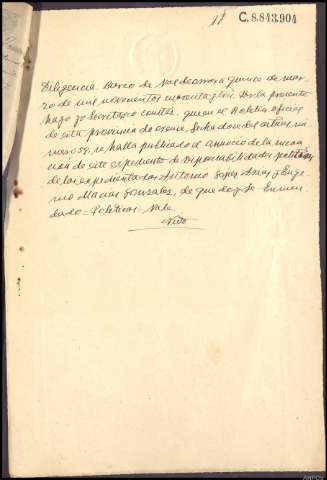 18 C.8.843.904
Diligencia. Barco de Valdeorras quince de mar-
zo de mil novecientos cuarenta y dos. Por la presente
hago yo Secretario constar, que en el Boletin oficial
de esta provincia de Orense, fecha doce del actual nú-
mero 58, se halla publicado el anuncio de la incoa-
ción de este expediente de responsabilidades políticas
de los expedientados Antonio López Arias y Euge-
nio Macías González, de que doy fe. Enmen-
dado = Políticas = Vale.